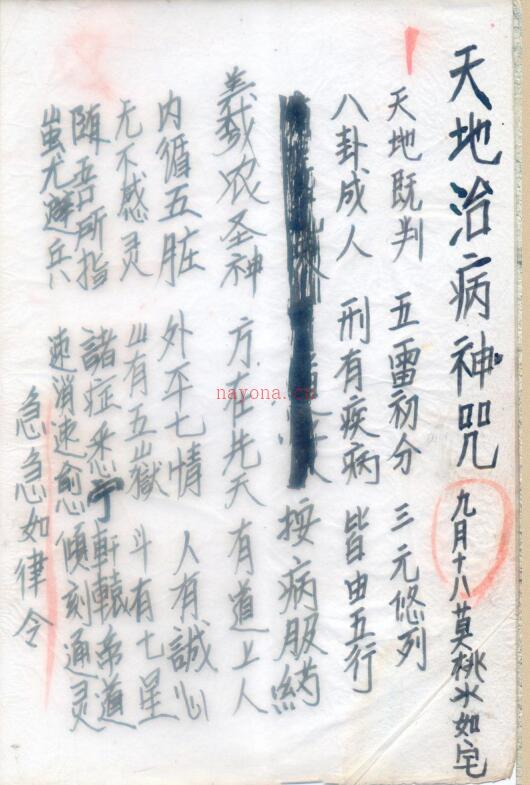 天地治病神咒 九月十八莫桃水如宅
天地既判 五雷初分 三元悠列
八卦成人 刑有疾病 皆由五行
按病服药
羲农圣神 方在先天 有道上人
内循五脏 外平七情 人有誠心
无不感灵 山有五嶽 斗有七星
随吾所指 諸症悉宁 軒轅帝道
蚩尤避兵 速消速愈 傾刻通灵
急急如律令
nayona.cn